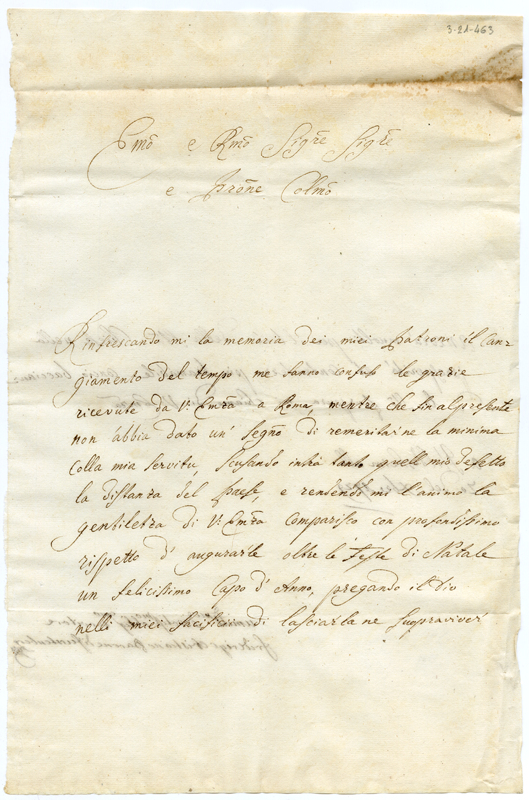 3-21-463
Emõ e Rmõ Sigre Sigre
e Prone Colmõ
Rinfrescando mi la memoria dei miei Patroni il Can-
giamento del tempo me fanno confuso le grazie
ricevute da V. Emza a Roma, mentre che sin al presente
non abbia dato un' segno di remeritarne la minima
colla mia servitu, scusando intra tanto quell mio defetto
la distanza del Paese, e rendendo mi l'animo la
gentilezza di V. Emza comparisco con profondissimo
rispetto d' augurarle oltre le feste di Natale
un felicissimo Capo d' Anno, pregando il Dio
nelli miei sacrificii di lasciarla ne sopraviver